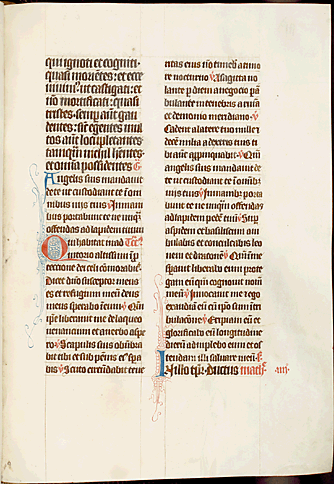 qui ignoti et cogniti
quasi morientes: et ecce
uiuim9: ut castigati: et
nō mortificati: quasi
tristes: semp aūt gau
dentes: sic egentes mul
tos aūt locupletantes
tamquā nichil hn̄tes:
et omnia possidentes
Angelis suis mandauit
de te ut custodiant te ī om
nibus uiis tuis In mani
bus portabunt te ne umqȝ
offendas ad lapidem tuum
Qui habitat in ad
iutorio altissimi in p
tectione dei celi comorabit
Dicet dn̄o susceptor meus
es et refugium meū deus
meus sperabo ī eum
ipse liberauit me de laqueo
uenantium et a uerbo aspe
ro Scapulis suis obūbra
bit tibi et sub pēnis ei9 spa
bis Scuto circūdabit te ue
ritas eius nō timeb a timo
re nocturno A sagitta uo
lante p diem a negocio pā
bulante in tenebris a ruina
et demonio meridiano
Cadent a latere tuo mille
decē milia a dextris tuis ti
bi aūt appinquabit Qm̄
angelis suis mandauit de
te ut custodiant te ī omib
uiis tuis In manib porta
bunt te ne umqȝ offendas
ad lapidem pedē tuū Sup
aspidem et basiliscum am
bulabis et conculcabis leo
nem et draconē Qm̄ ī me
sperauit liberabo eum prote
gam eū qm̄ cognouit nom̄
meū Inuocauit me et ego
exaudiā eū cū ipo sum ī tri
bulacōe Eripiam eū et
glorificabo eū longitudine
dierū adimplebo eum et os
tendam illi salutare meū
In illo tpr̄ Ductus math